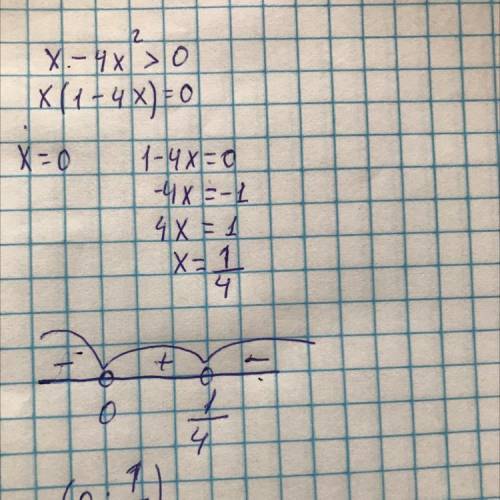 x - 4x² > 0
x(1 - 4x) = 0
x = 0 1 - 4x = 0
-4x = -1
4x = 1
x = 1/4
- + -
0 1/4
(0; 1